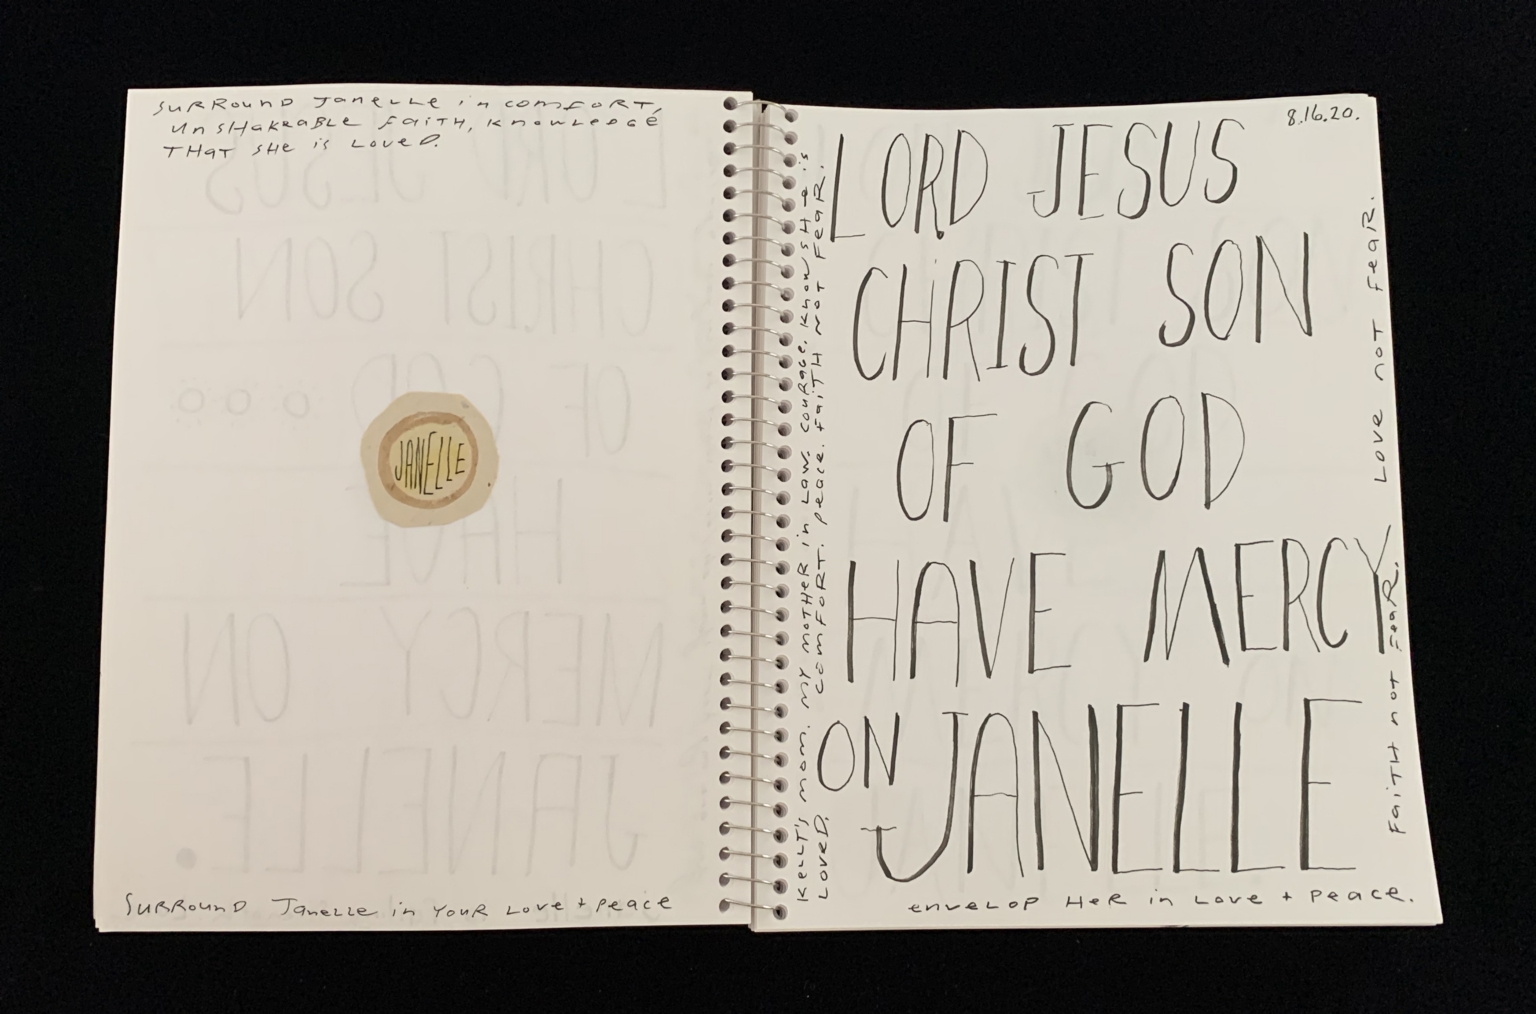 SURROUND JANELLE in COMFORT,
UNSHAKEABLE FAITH, KNOWLEDGE
THAT SHE is LOVED.
JANELLE
SURROUND JANELLE in YOUR LOVE + PEACE
8.16.20.
LORD JESUS
CHRIST SON
OF GOD
HAVE MERCY
ON JANELLE
ENVELOP HER in LOVE + PEACE.
KELLY'S MOM. MY MOTHER in LAW. COURAGE. KNOW SHE is
LOVED. COMFORT. PEACE. FAITH NOT FEAR.
FAITH NOT FEAR. LOVE NOT FEAR.